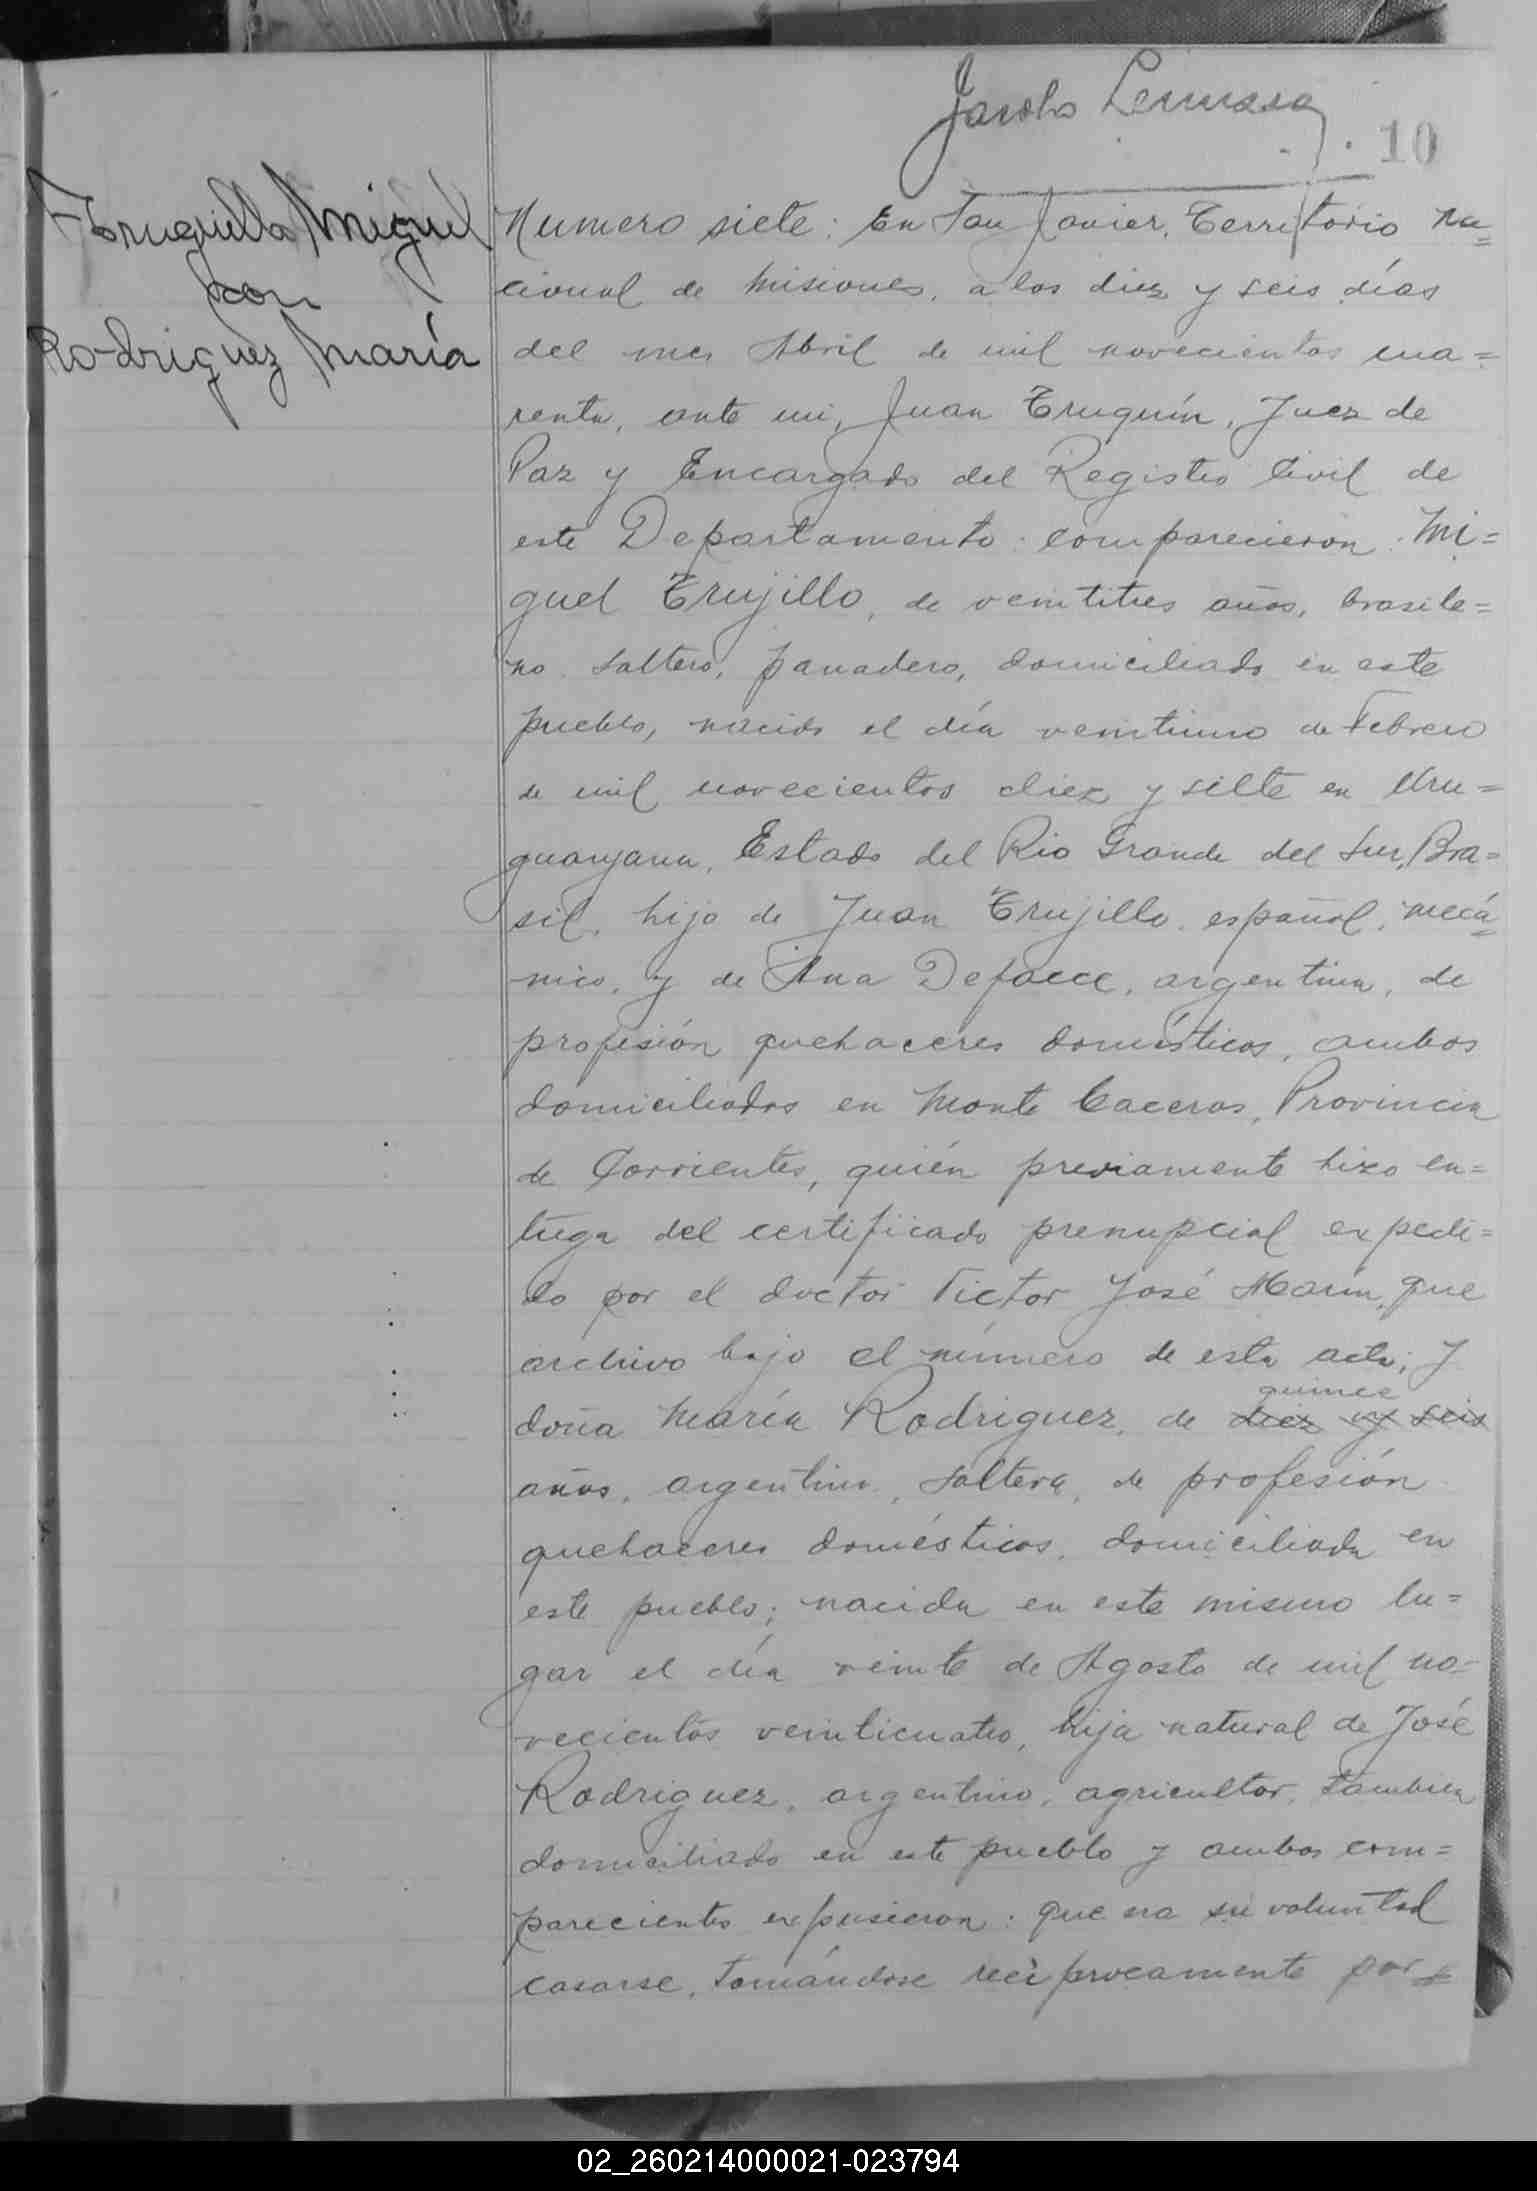 Jacobo
10
Truquillo Miguel
con
Rodriguez María
Numero siete: En San Javier, Territorio Na=
cional de Misiones, a los diez y seis días
del mes Abril de mil novecientos cua=
renta, ante mi, Juan Truquín, Juez de
Paz y Encargado del Registro Civil de
este Departamento: comparecieron: Mi=
guel Trujillo, de veintitres años, brasile=
no, soltero, panadero, domiciliado en este
pueblo, nacido el día veintiuno de Febrero
de mil novecientos diez y siete en Uru=
guayana, Estado del Rio Grande del Sur, Bra=
sil, hijo de Juan Trujillo, español, mecá=
nico, y de Ana Deface, argentina, de
profesión quehaceres domésticos, ambos
domiciliados en Monte Caceros, Provincia
de Corrientes, quién previamente hizo en=
trega del certificado prenupcial expedi=
do por el doctor Victor José Marin, que
archivo bajo el número de esta acta; y
quince
doña María Rodriguez, de diez y seis
años, argentina, soltera, de profesión
quehaceres domésticos, domiciliada en
este pueblo; nacida en este mismo lu=
gar el día veinte de Agosto de mil no=
vecientos veinticuatro, hija natural de José
Rodriguez, argentino, agricultor, tambien
domiciliado en este pueblo y ambos com=
parecientes expusieron: que era su voluntad
casarse, tomándose reciprocamente por=
02_260214000021-023794